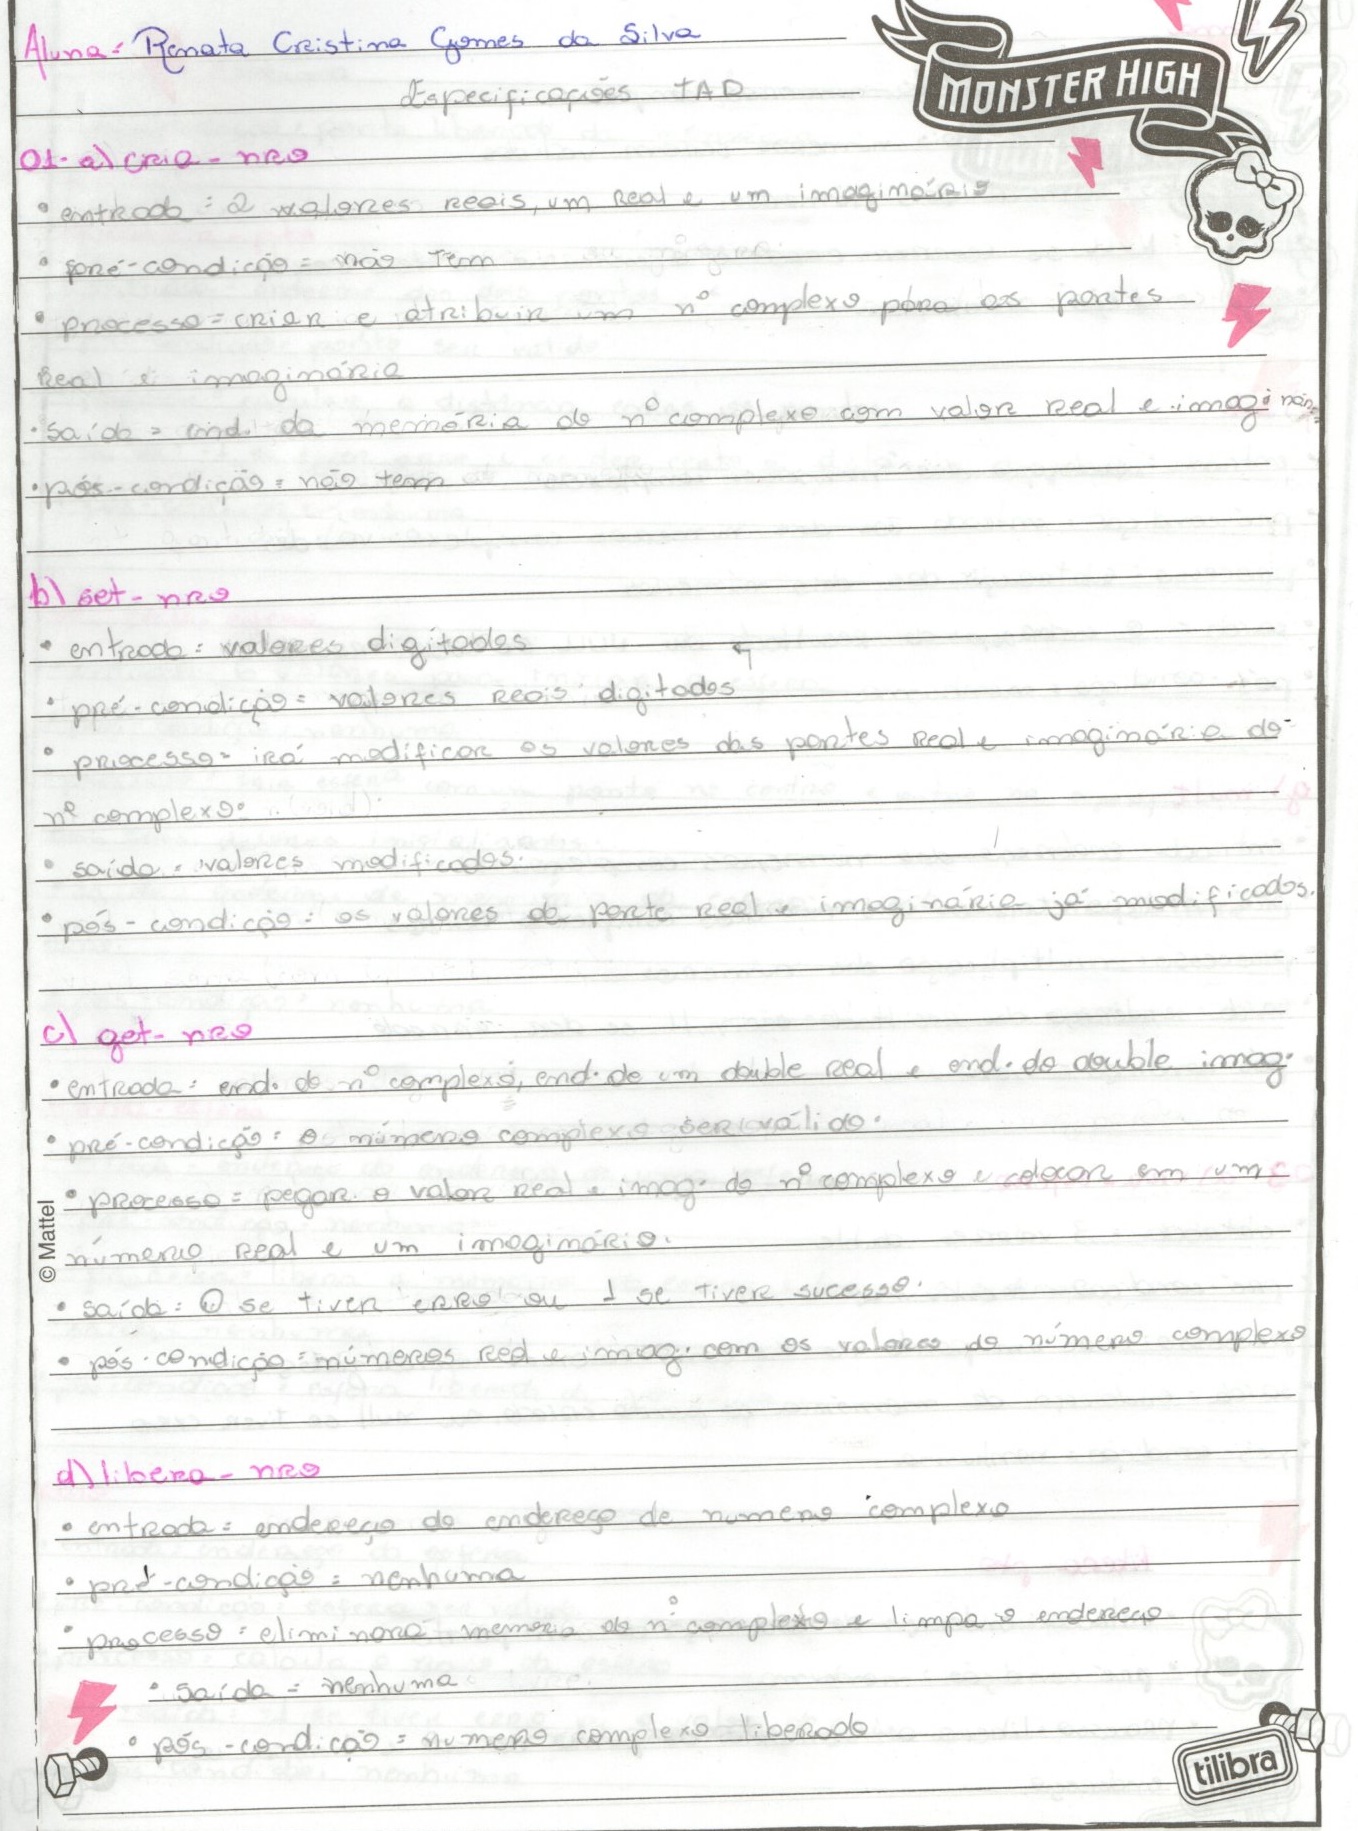 Aluna: Renata Cristina Gomes da Silva
MONSTER HIGH
Especificações TAD
01- a) cria-nro
• entrada = 2 valores reais, um real e um imaginário
• pré-condição = não tem
• processo = criar e atribuir um nº complexo para as partes
real e imaginária
• saída = end. da memória do nº complexo com valor real e imaginário
• pós-condição = não tem
b) set-nro
• entrada = valores digitados
• pré-condição = valores reais digitados
• processo = irá modificar os valores das partes real e imaginária do
nº complexo.
• saída = valores modificados.
• pós-condição = os valores da parte real e imaginária já modificados.
c) get-nro
• entrada = end. do nº complexo, end. de um double real e end. do double imag.
• pré-condição = o número complexo ser válido.
• processo = pegar o valor real e imag. do nº complexo e colocar em um
número real e um imaginário.
• saída = 0 se tiver erro ou 1 se tiver sucesso.
• pós-condição = números real e imag. com os valores do número complexo
© Mattel
d) libera-nro
• entrada = endereço do endereço de numero complexo
• pré-condição = nenhuma
• processo = eliminará memória do nº complexo e limpa o endereço
• saída = nenhuma
• pós-condição = numero complexo liberado
tilibra